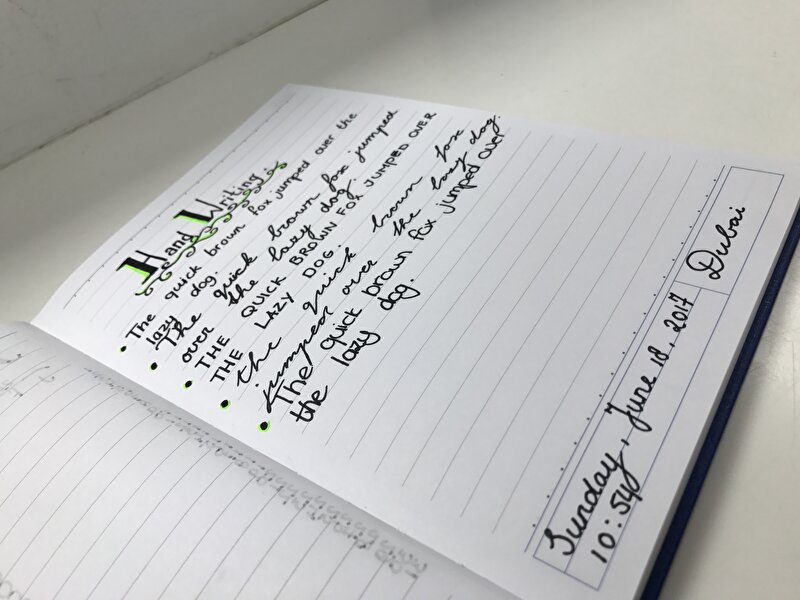 Hand Writing
The quick brown fox jumped over the
lazy dog.
The quick brown fox jumped
over the lazy dog.
THE QUICK BROWN FOX JUMPED OVER
THE LAZY DOG.
the quick brown fox
jumped over the lazy dog.
The quick brown fox jumped over
the lazy dog.
Sunday, June 18, 2017
10:54
Dubai